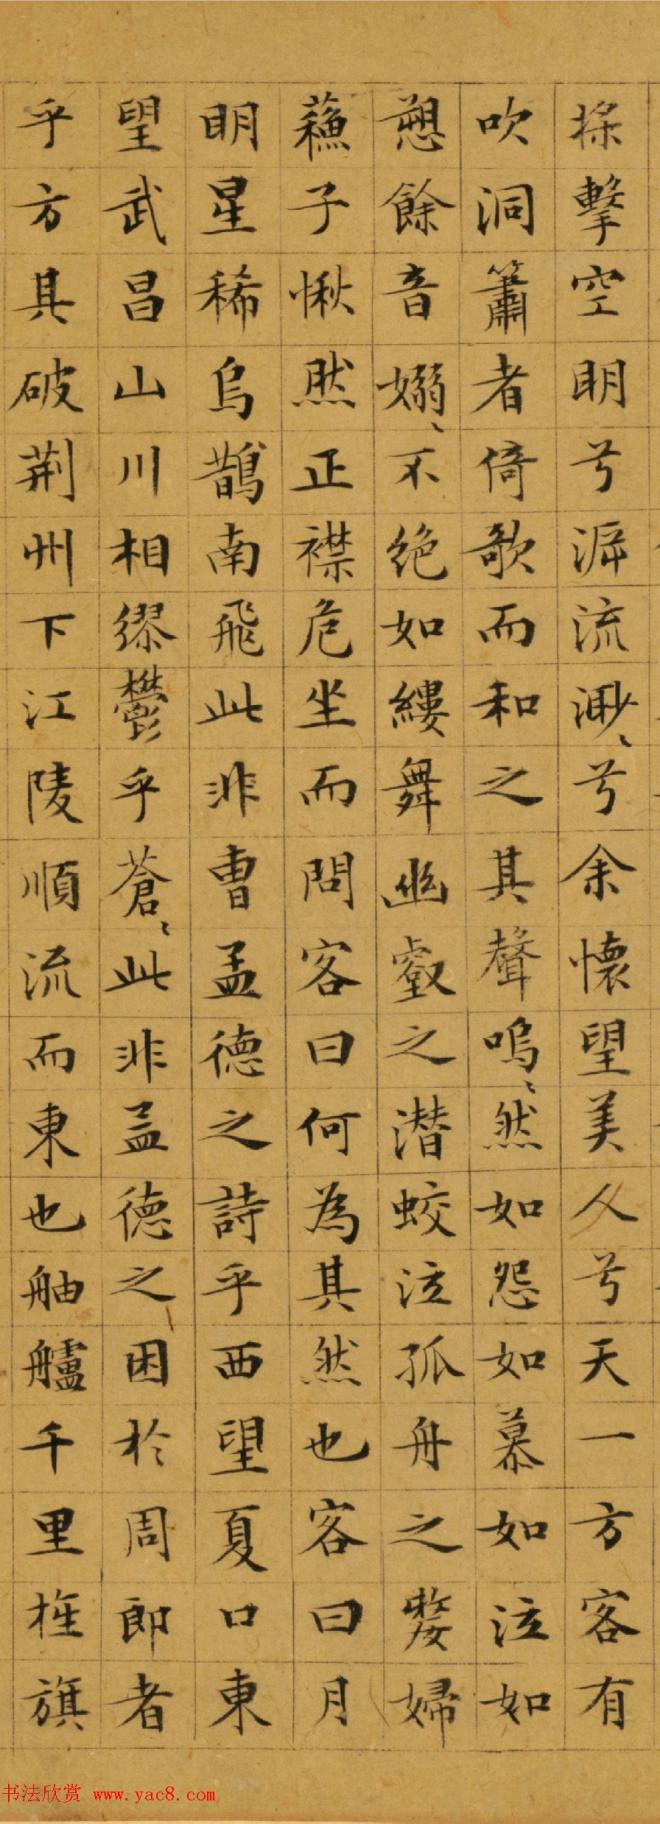 槳擊空明兮泝流渺〻兮余懷望美人兮天一方客有
吹洞簫者倚歌而和之其聲嗚〻然如怨如慕如泣如
愬餘音嫋〻不絕如縷舞幽壑之潛蛟泣孤舟之嫠婦
蘇子愀然正襟危坐而問客曰何為其然也客曰月
明星稀烏鵲南飛此非曹孟德之詩乎西望夏口東
望武昌山川相繆鬱乎蒼〻此非孟德之困於周郎者
乎方其破荊州下江陵順流而東也舳艫千里旌旗
书法欣赏 www.yac8.com